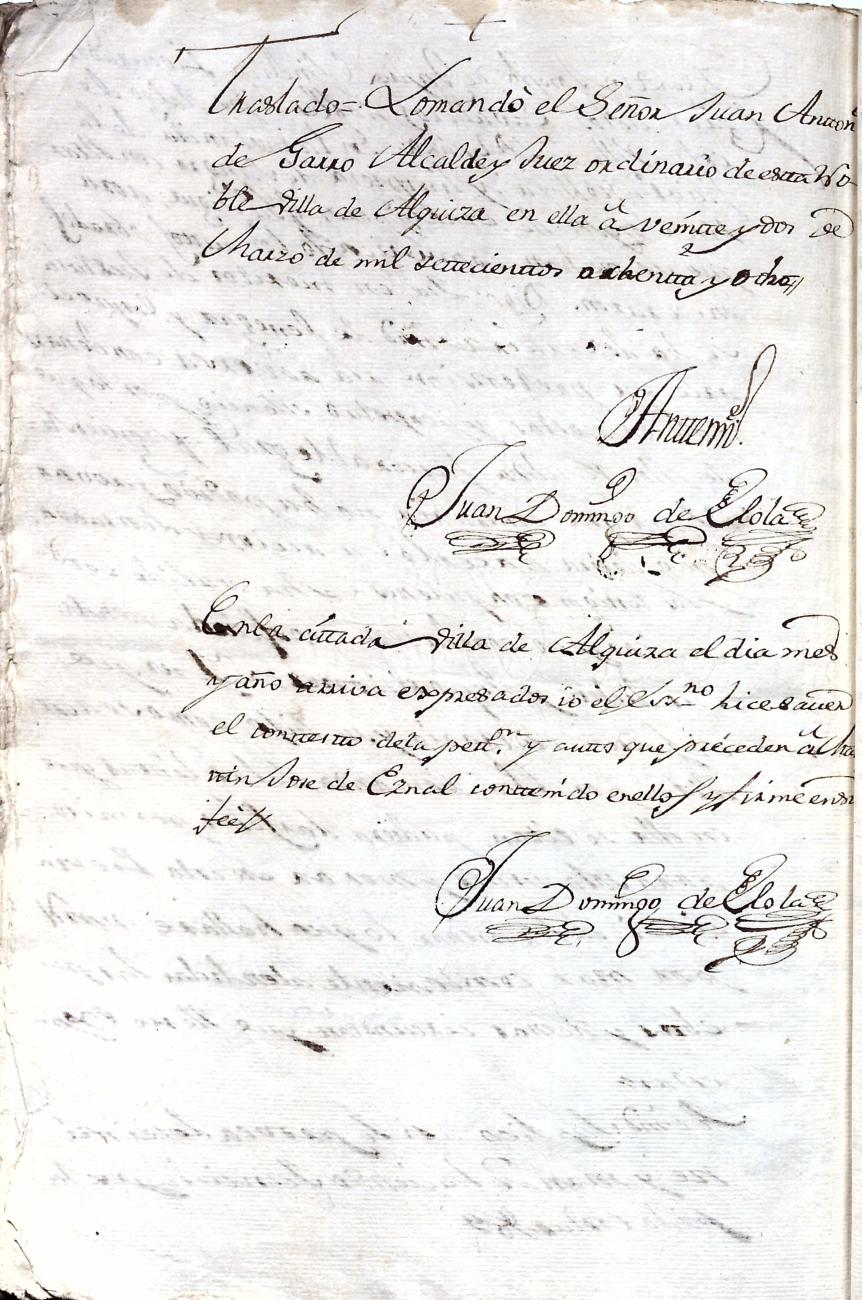 Traslado = Lo mandò el Señor Juan Antton
de Garro Alcalde y Juez ordinario de estta No-
ble Villa de Alquiza en ella â veintte y dos de
Marzo de mil settecienttos ochentta y ocho
Antemi
Juan Domingo de Elola
En la cittada Villa de Alquiza el dia mes
y año arriva expresados io el Essno hice saver
el conttestto de la pettn y autto que preceden â Mar
ttin Jose de Eznal conttenido en ellos y firme en
feè
Juan Domingo de Elola